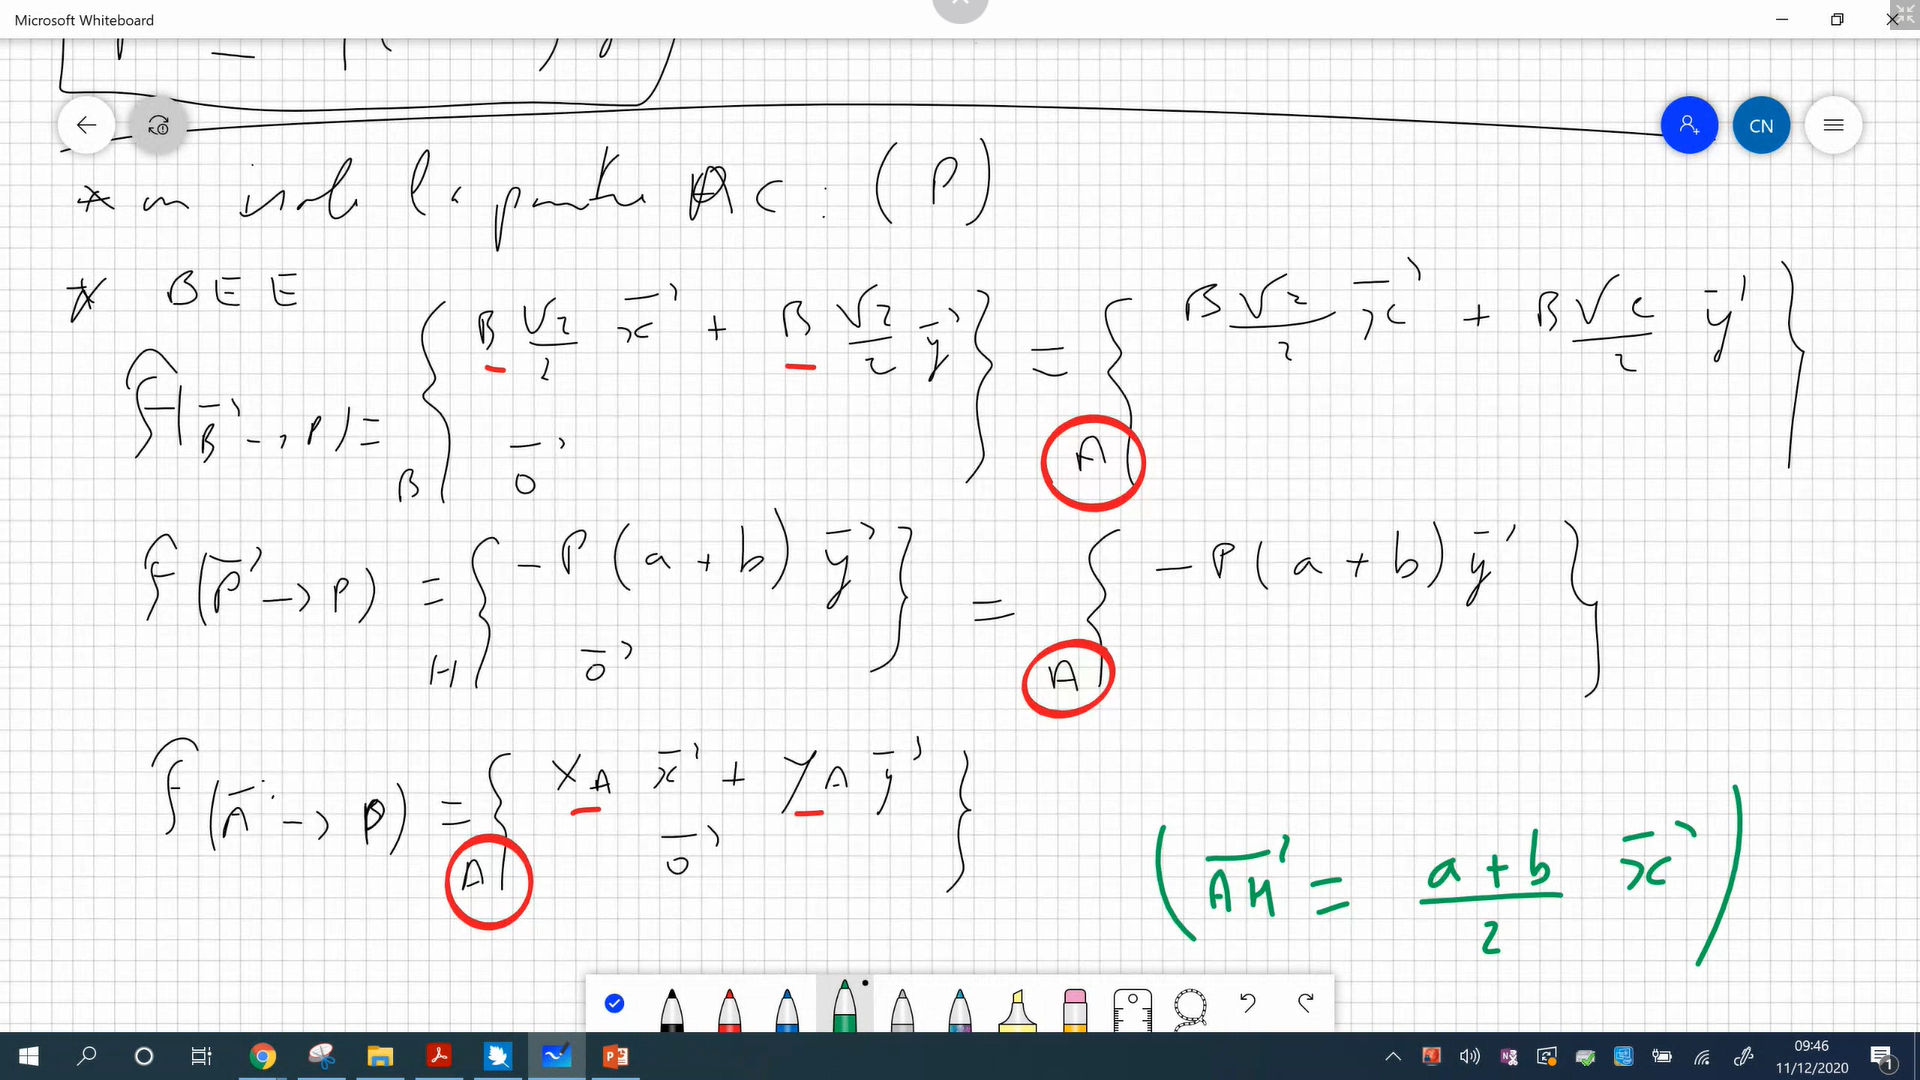 Microsoft Whiteboard
CN
* on isole la poutre AC : (P)
* BEE
F(B⃗ → P) = B { B √2/2 x⃗ + B √2/2 y⃗ ; 0⃗ } = A { B √2/2 x⃗ + B √2/2 y⃗ }
F(P⃗ → P) = H { -P(a+b) y⃗ ; 0⃗ } = A { -P(a+b) y⃗ }
F(A⃗ → P) = A { X_A x⃗ + Y_A y⃗ ; 0⃗ }
(AH⃗ = a+b/2 x⃗)
09:46
11/12/2020
1